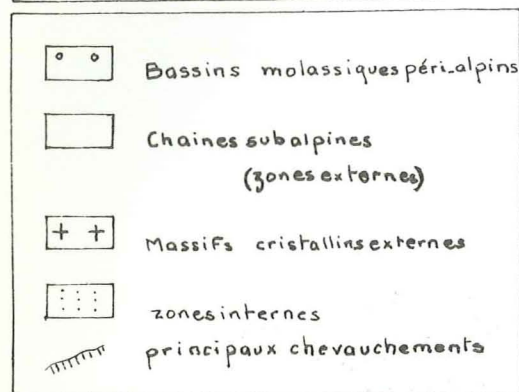 Bassins molassiques péri-alpins
Chaines subalpines
(zones externes)
Massifs cristallins externes
zones internes
principaux chevauchements